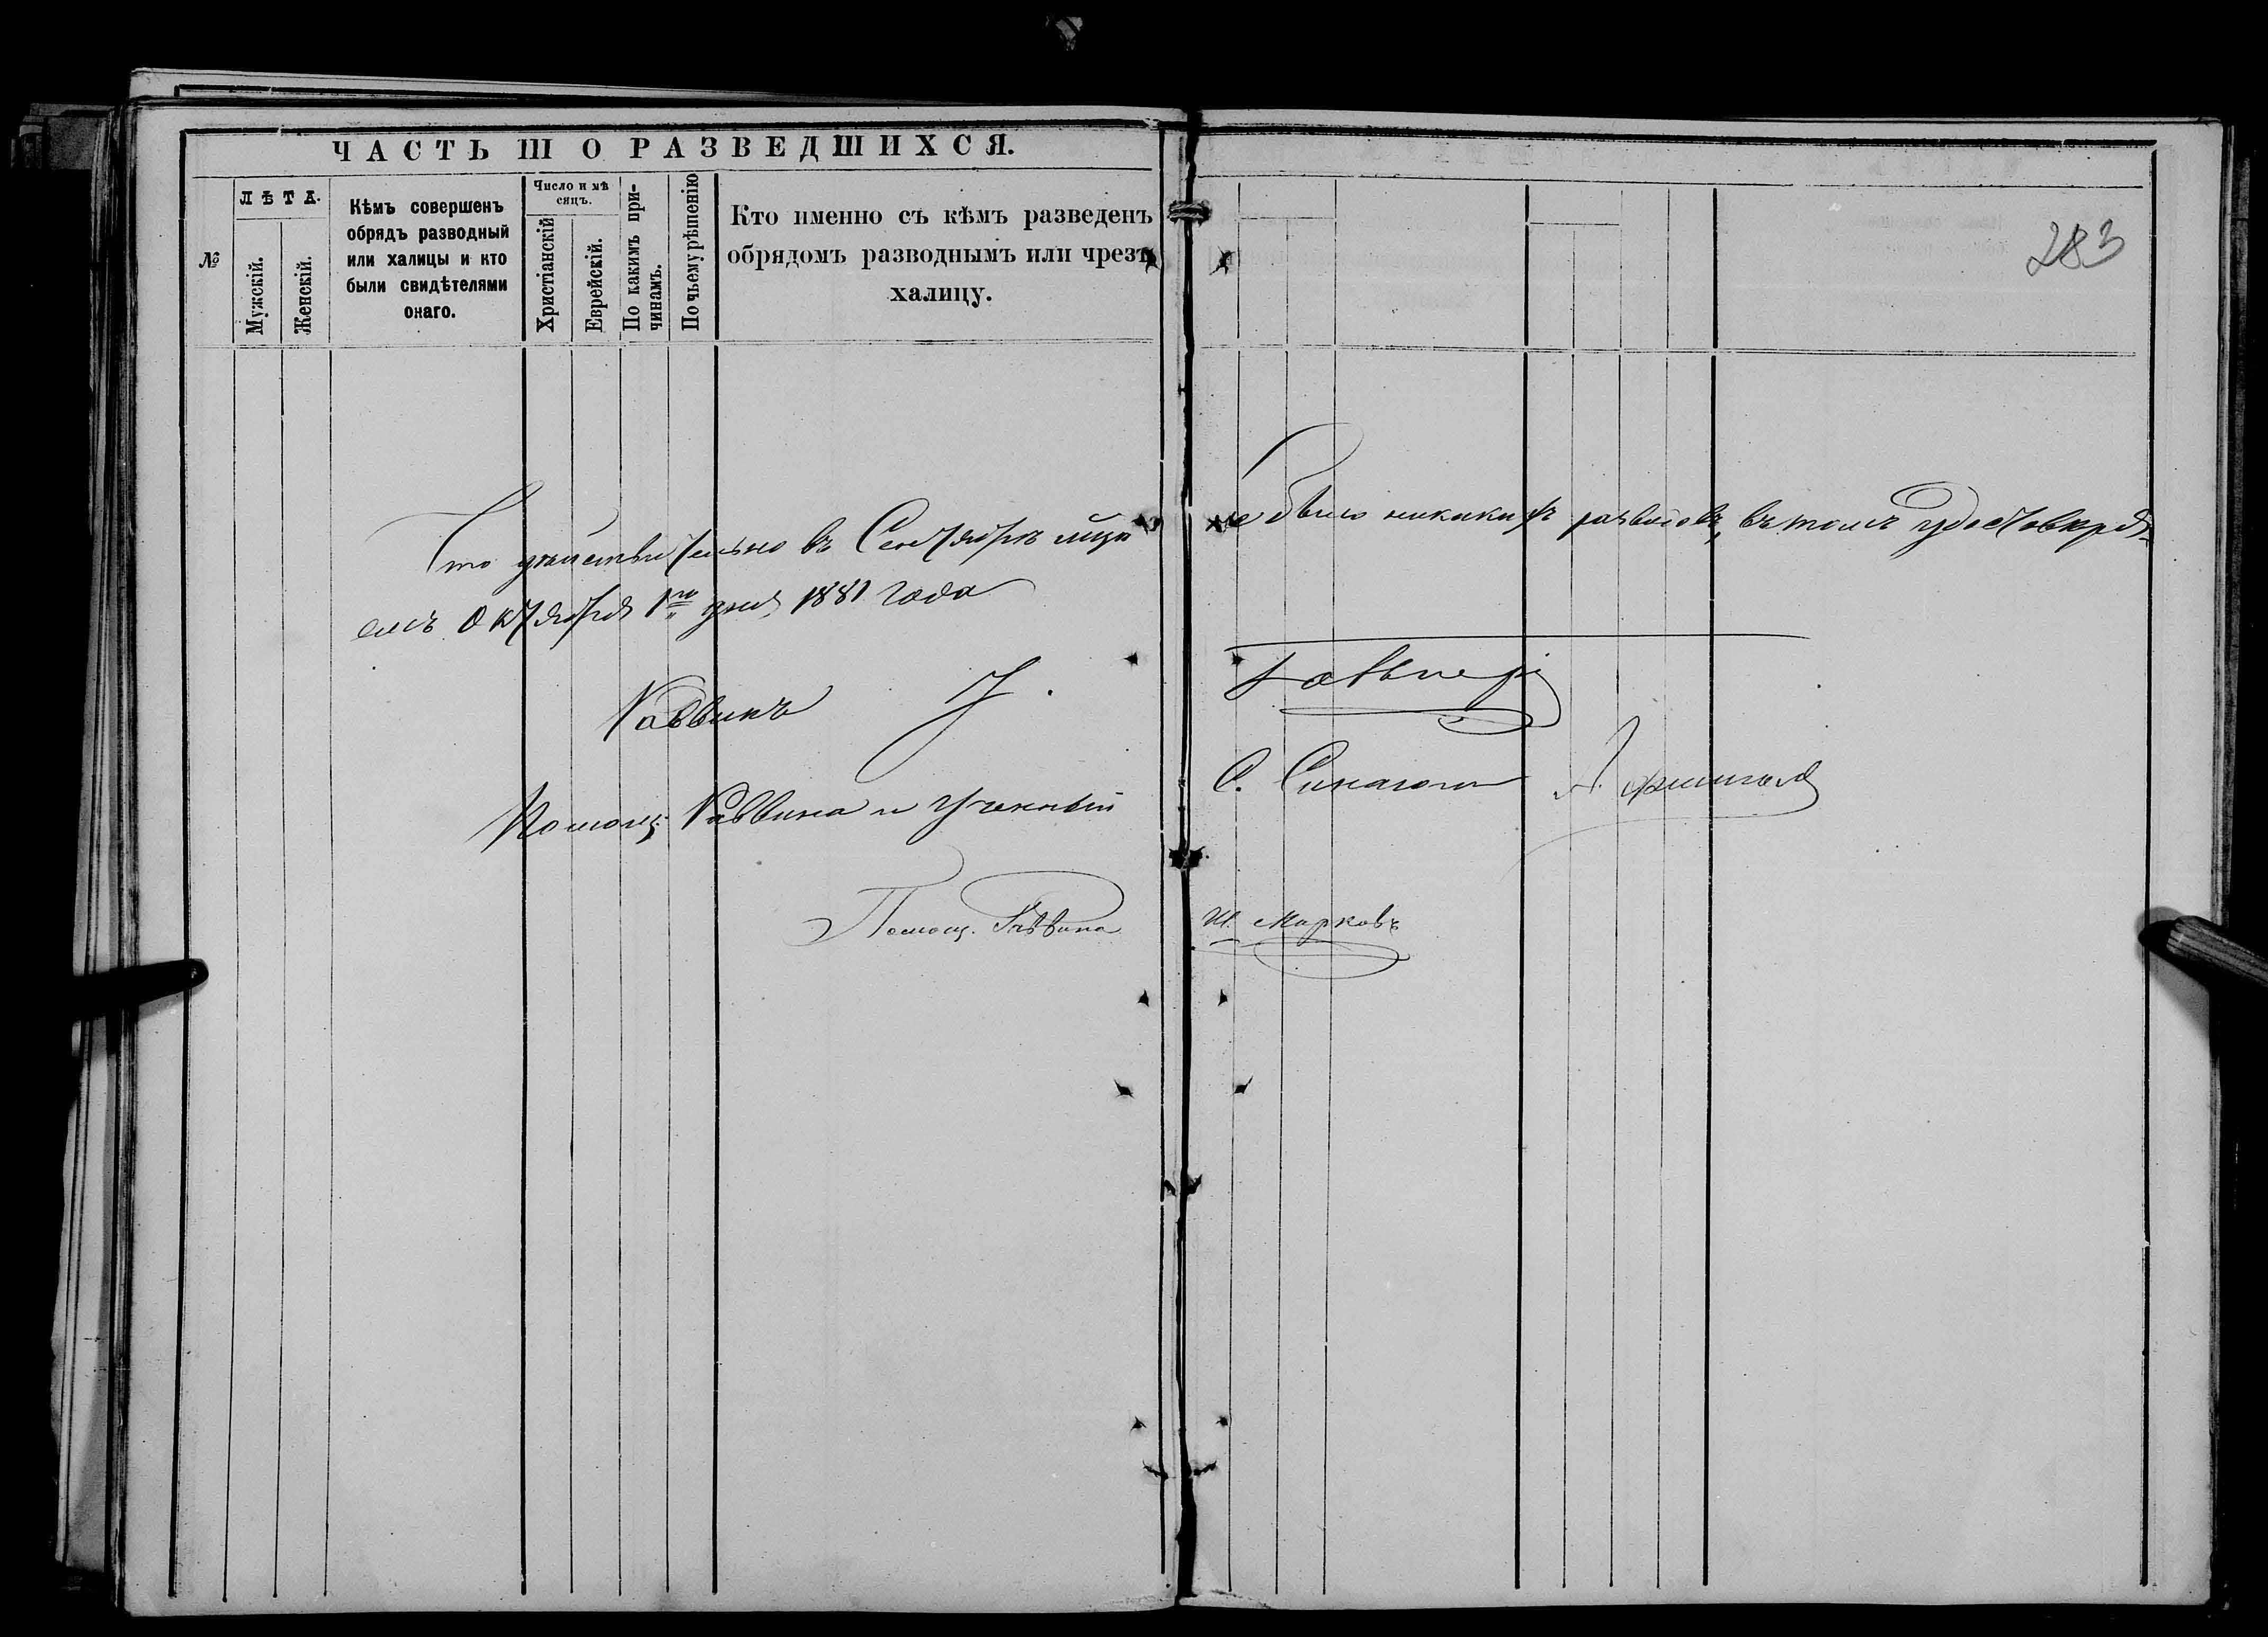 ЧАСТЬ III О РАЗВЕДШИХСЯ.
№
ЛѢТА.
Мужскій.
Женскій.
Кѣмъ совершенъ
обрядъ разводный
или халицы и кто
были свидѣтелями
онаго.
Число и мѣ
сяцъ.
Христіанскій
Еврейскій.
По какимъ при-
чинамъ.
По чьему рѣшенію
Кто именно съ кѣмъ разведенъ
обрядомъ разводнымъ или чрезъ
халицу.
283
Что дѣйствительно въ Сентябрѣ мцѣ не было никакихъ разводовъ, въ томъ удостовѣря-
емъ Октября 1го дня 1881 года
Раввинъ
Помощ. Раввина и Ученый С. Синагоги
Помощ. Раввина Ш. Марковъ